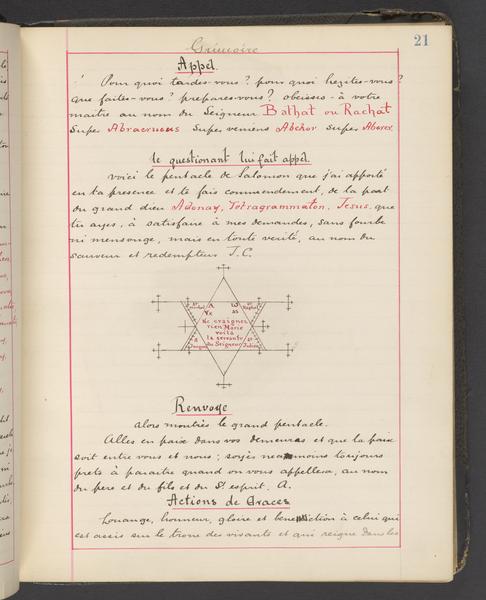 Grimoire
21
Appel.
! Pour quoi tardes-vous? pour quoi hezites-vous?
que faites-vous? preparez-vous? obeisses-à votre
maitre au nom du Seigneur Bathat ou Rachat
super Abracruens super veniens Abehor super Aberer.
le questionant lui fait appel.
Voici le pentacle de Salomon que j'ai apporté
en ta presence et te fais commendement, de la part
du grand dieu Adonay, Tetragrammaton, Jesus que
tu ayes, à satisfaire à mes demandes, sans fourbe
ni mensonge, mais en toute verité, au nom du
sauveur et redempteur J.C.
A W
Ne craignez
rien Marie
voila
la servante
du Seigneur
Renvoye
alors montrés le grand pentacle.
Alles en paix dans vos demeures et que la paix
soit entre vous et nous; soyés neanmoins toujours
prets à paraitre quand on vous appellera, au nom
du pere et du fils et du St esprit. A.
Actions de Graces
Louange, honneur, gloire et benediction à celui qui
est assis sur le trone des vivants et qui reigne dans les